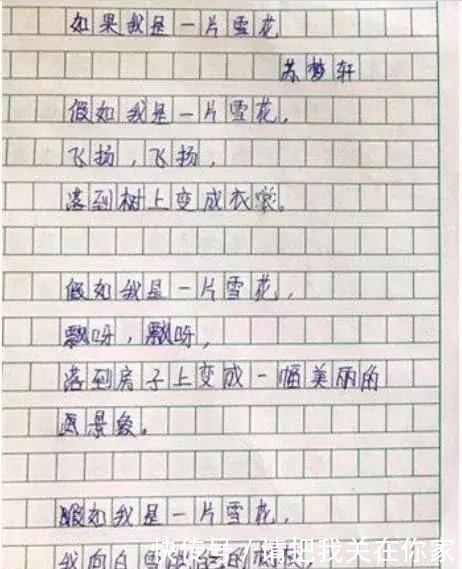 如果我是一片雪花
苏梦轩
假如我是一片雪花，
飞扬，飞扬，
落到树上变成衣裳。
假如我是一片雪花，
飘呀，飘呀，
落到房子上变成一幅美丽的
画景象。
假如我是一片雪花，
我向白雪
快传号／请把我关在你家